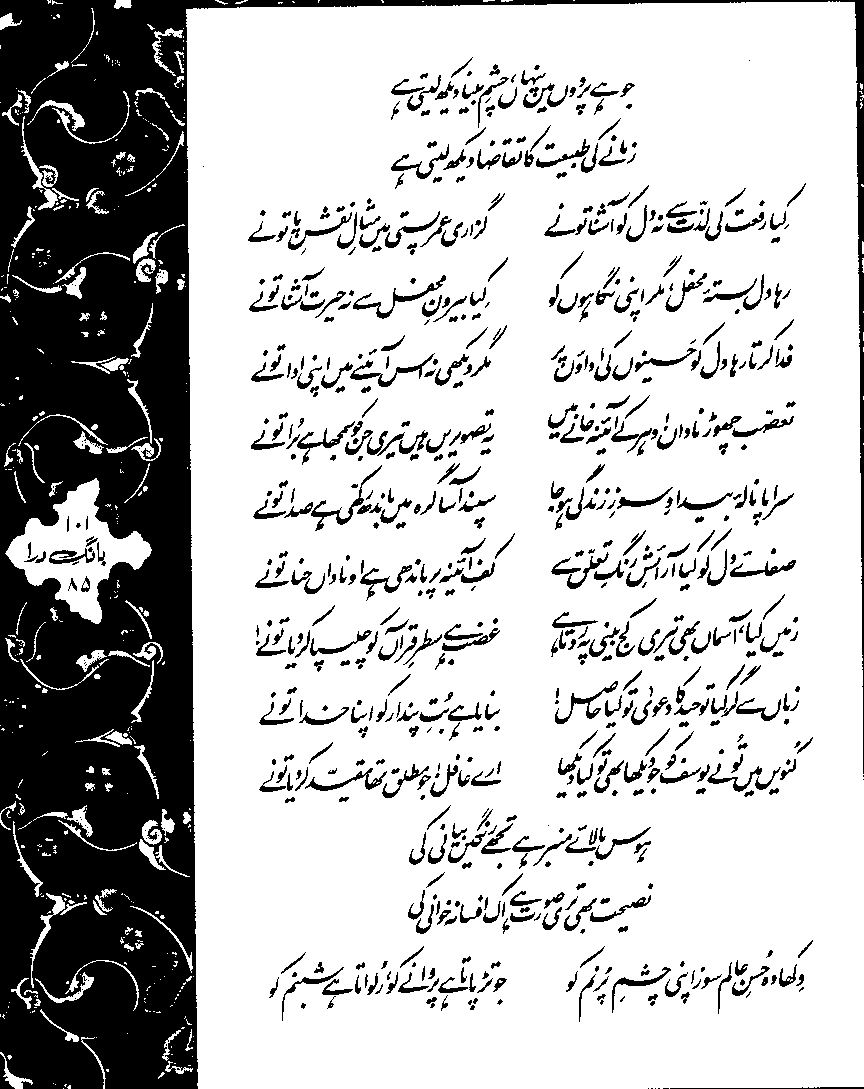 جو ہے پردوں میں پنہاں، چشمِ بینا دیکھ لیتی ہے
زمانے کی طبیعت کا تقاضا دیکھ لیتی ہے
کیا رفعت کی لذّت سے نہ دل کو آشنا تو نے گزاری عمر پستی میں مثالِ نقشِ پا تو نے
رہا دل بستۂ محفل، مگر اپنی نگاہوں کو کیا بیرونِ محفل سے نہ حیرت آشنا تو نے
فدا کرتا رہا دل کو حَسینوں کی اداؤں پر مگر دیکھی نہ اس آئینے میں اپنی ادا تو نے
تعصّب چھوڑ ناداں! دہر کے آئینہ خانے میں یہ تصویریں ہیں تیری جن کو سمجھا ہے بُرا تو نے
سراپا نالۂ بیدادِ سوزِ زندگی ہو جا سپند آسا گرہ میں باندھ رکھی ہے صدا تو نے
صفائے دل کو کیا آرائشِ رنگِ تعلّق سے کفِ آئینہ پر باندھی ہے او ناداں حنا تو نے
زمیں کیا، آسماں بھی تیری کج بینی پہ روتا ہے غضب ہے سطرِ قرآں کو چلیپا کر دیا تو نے!
زباں سے گر کیا توحید کا دعویٰ تو کیا حاصل! بنایا ہے بُتِ پندار کو اپنا خدا تو نے
کُنویں میں تُو نے یوسف کو جو دیکھا بھی تو کیا دیکھا ارے غافل! جو مطلق تھا مقیّد کر دیا تو نے
ہوس بالائے منبر ہے تجھے رنگیں بیانی کی
نصیحت بھی تری صورت ہے اک افسانہ خوانی کی
دِکھا وہ حُسنِ عالم سوز اپنی چشمِ پُرنم کو جو تڑپاتا ہے پروانے کو، رُلواتا ہے شبنم کو
۱۰۱
بانگ درا
۸۵